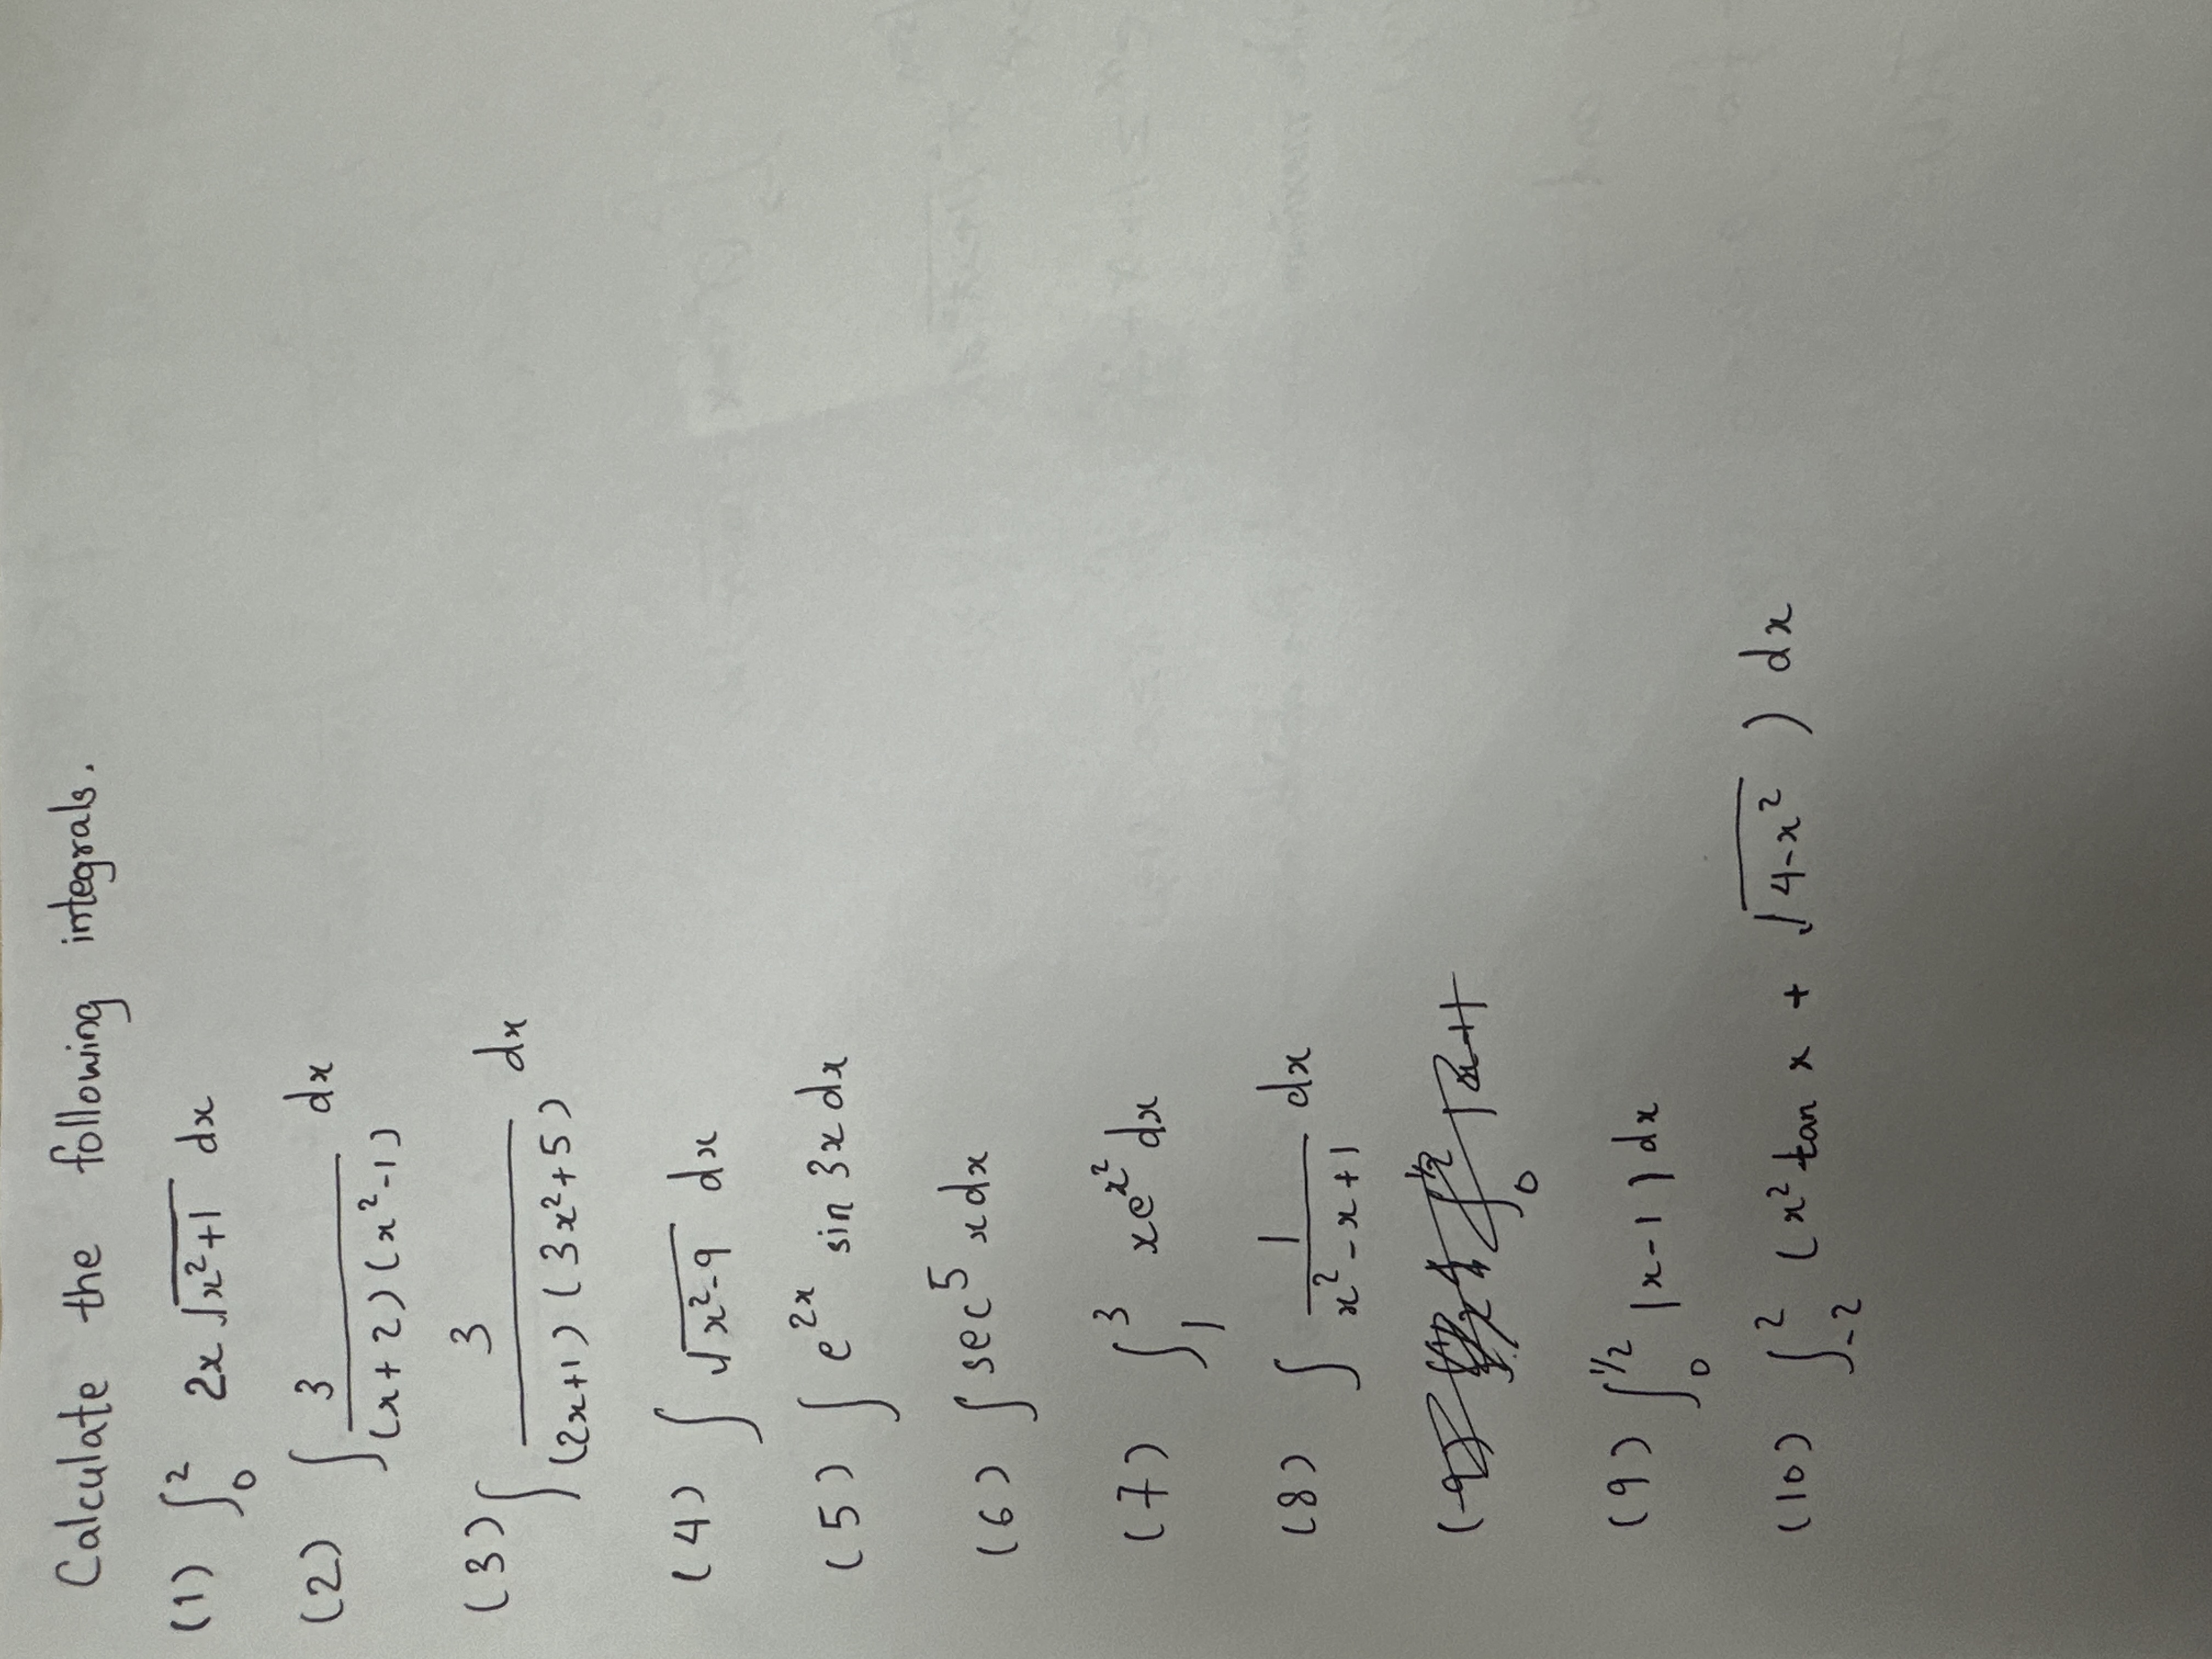 Calculate the following integrals.
(1) ∫₀² 2x√(x²+1) dx
(2) ∫ 3/((x+2)(x²-1)) dx
(3) ∫ 3/((2x+1)(3x²+5)) dx
(4) ∫ √(x²-9) dx
(5) ∫ e^(2x) sin 3x dx
(6) ∫ sec⁵ x dx
(7) ∫₁³ xe^(x²) dx
(8) ∫ 1/(x²-x+1) dx
(9) ∫₀^(1/2) |x-1| dx
(10) ∫₋₂² (x² tan x + √(4-x²)) dx